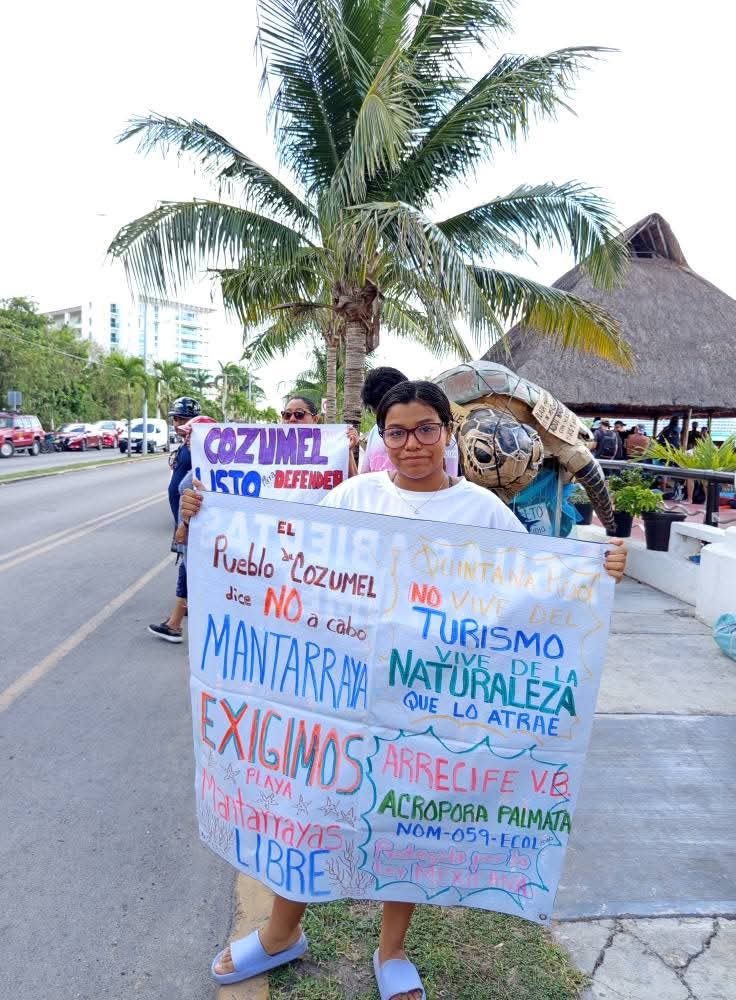 COZUMEL
LISTO PARA DEFENDER
EL
Pueblo de COZUMEL
dice NO a cabo
MANTARRAYA
EXIGIMOS
PLAYA
Mantarrayas
LIBRE
QUINTANA ROO
NO VIVE DEL
TURISMO
VIVE DE LA
NATURALEZA
QUE LO ATRAE
ARRECIFE V.B.
ACROPORA PALMATA
NOM-059-ECOL
Protegido por la
LEY MEXICANA